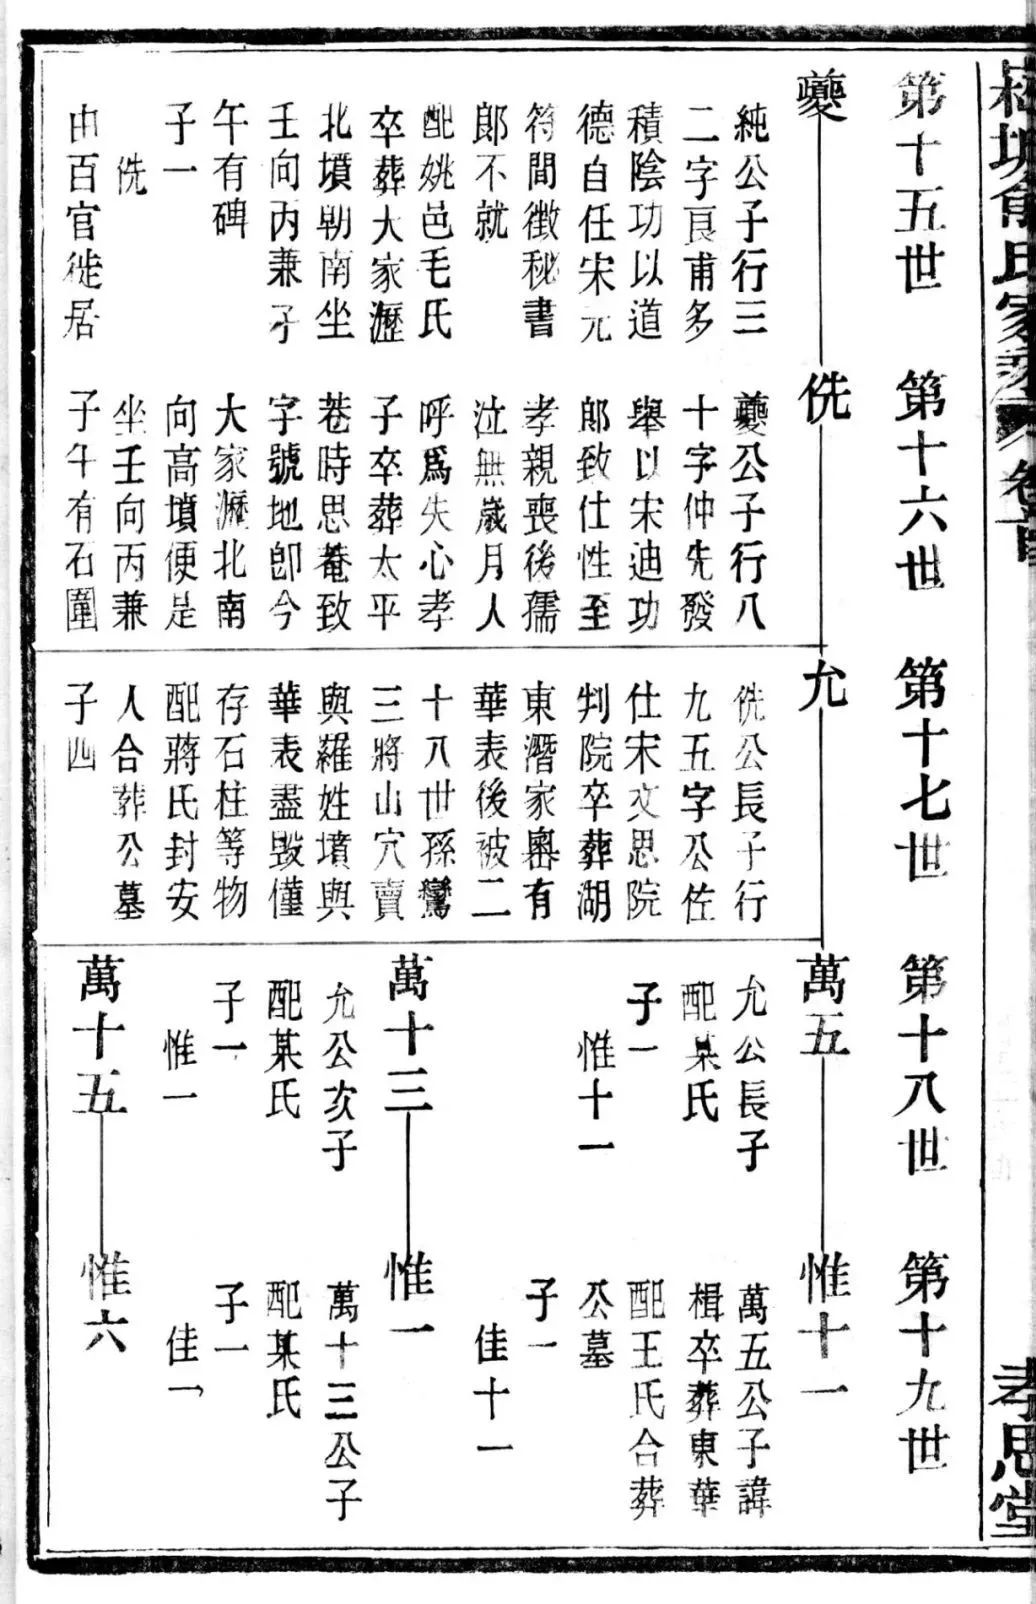 氏家
孝思堂
第十五世
第十六世
第十七世
第十八世
第十九世
夔
純公子行三
二字良甫多
積陰功以道
德自任宋元
符間徵秘書
郎不就
配姚邑毛氏
卒葬大家瀝
北墳朝南坐
壬向丙兼子
午有碑
子一
侁
由百官徙居
侁
夔公子行八
十字仲先發
舉以宋迪功
郎致仕性至
孝親喪後孺
泣無歲月人
呼為失心孝
子卒葬太平
巷時思菴致
字號地即今
大家瀝北南
向高墳便是
坐壬向丙兼
子午有石圍
允
侁公長子行
九五字公佐
仕宋文思院
判院卒葬湖
東潛家嶴有
華表後被二
十八世孫鸞
三將山穴賣
與羅姓墳與
華表盡毀僅
存石柱等物
配蔣氏封安
人合葬公墓
子四
萬五
允公長子
配某氏
子一
惟十一
萬十三
允公次子
配某氏
子一
惟一
萬十五
惟十一
萬五公子諱
楫卒葬東華
配王氏合葬
公墓
子一
佳十一
惟一
萬十三公子
配某氏
子一
佳一
惟六